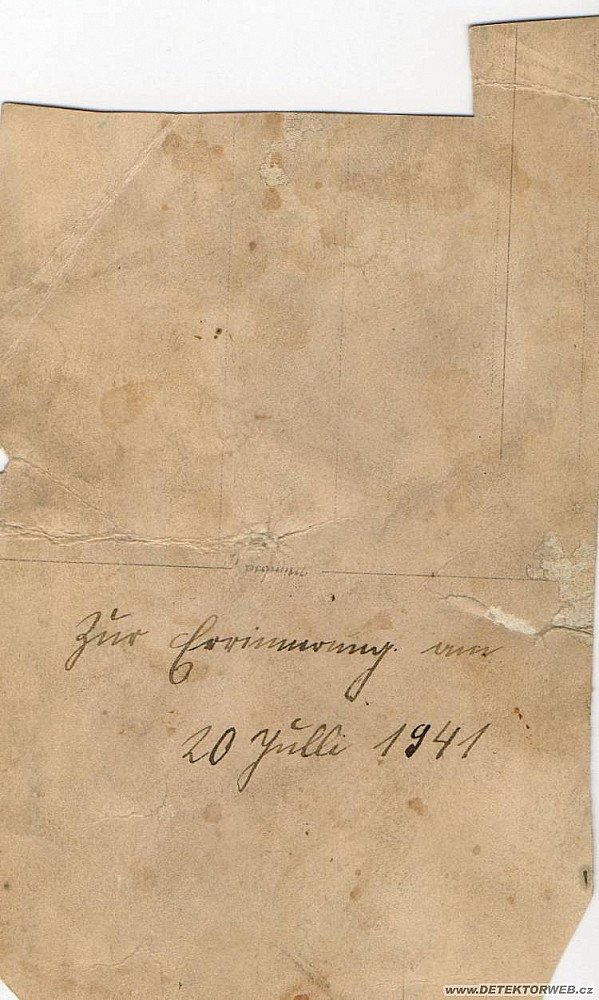 Mimosa
Zur Errinnerung. am
20 Julli 1941
www.DETEKTORWEB.cz